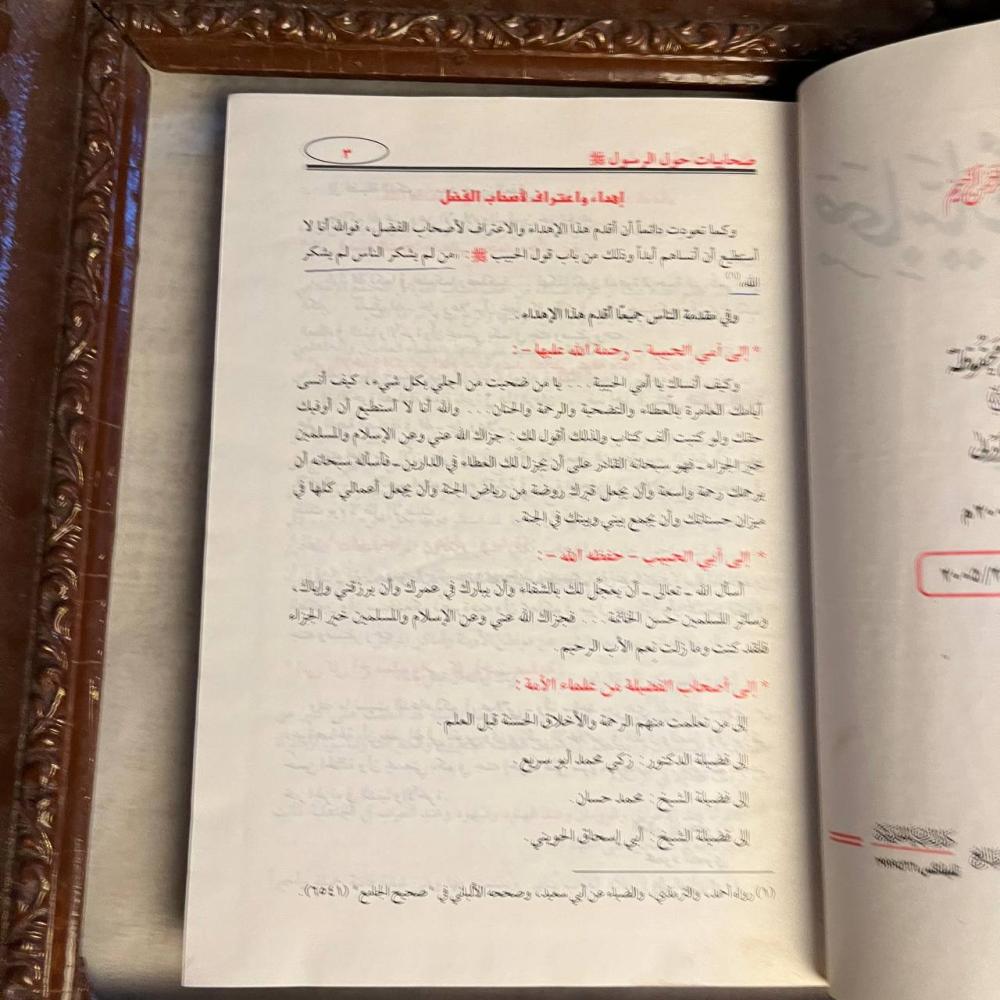 صحابيات حول الرسول ﷺ
٣
إهداء واعتراف لأصحاب الفضل
وكما تعودت دائماً أن أقدم هذا الإهداء والاعتراف لأصحاب الفضل، فوالله أنا لا
أستطيع أن أنساهم أبداً وذلك من باب قول الحبيب ﷺ: «من لم يشكر الناس لم يشكر
الله»(١)
وفي مقدمة الناس جميعًا أقدم هذا الإهداء.
* إلى أمي الحبيبة - رحمة الله عليها -:
وكيف أنساكِ يا أمي الحبيبة... يا من ضحيت من أجلي بكل شيء، كيف أنسى
أيامك العامرة بالعطاء والتضحية والرحمة والحنان... والله أنا لا أستطيع أن أوفيك
حقك ولو كتبت ألف كتاب ولذلك أقول لك: جزاك الله عني وعن الإسلام والمسلمين
خير الجزاء ـ فهو سبحانه القادر على أن يجزل لك العطاء في الدارين ـ فأسأله سبحانه أن
يرحمك رحمة واسعة وأن يجعل قبرك روضة من رياض الجنة وأن يجعل أعمالي كلها في
ميزان حسناتك وأن يجمع بيني وبينك في الجنة.
* إلى أبي الحبيب - حفظه الله -:
أسأل الله ـ تعالى ـ أن يعجل لك بالشفاء وأن يبارك في عمرك وأن يرزقني وإياك،
وسائر المسلمين حُسن الخاتمة... فجزاك الله عني وعن الإسلام والمسلمين خير الجزاء
فلقد كنت وما زلت نعم الأب الرحيم.
* إلى أصحاب الفضيلة من علماء الأمة:
إلى من تعلمت منهم الرحمة والأخلاق الحسنة قبل العلم.
إلى فضيلة الدكتور: زكي محمد أبو سريع.
إلى فضيلة الشيخ: محمد حسان.
إلى فضيلة الشيخ: أبي إسحاق الحويني.
(١) رواه أحمد، والترمذي، والضياء عن أبي سعيد، وصححه الألباني في "صحيح الجامع" (٦٥٤١).